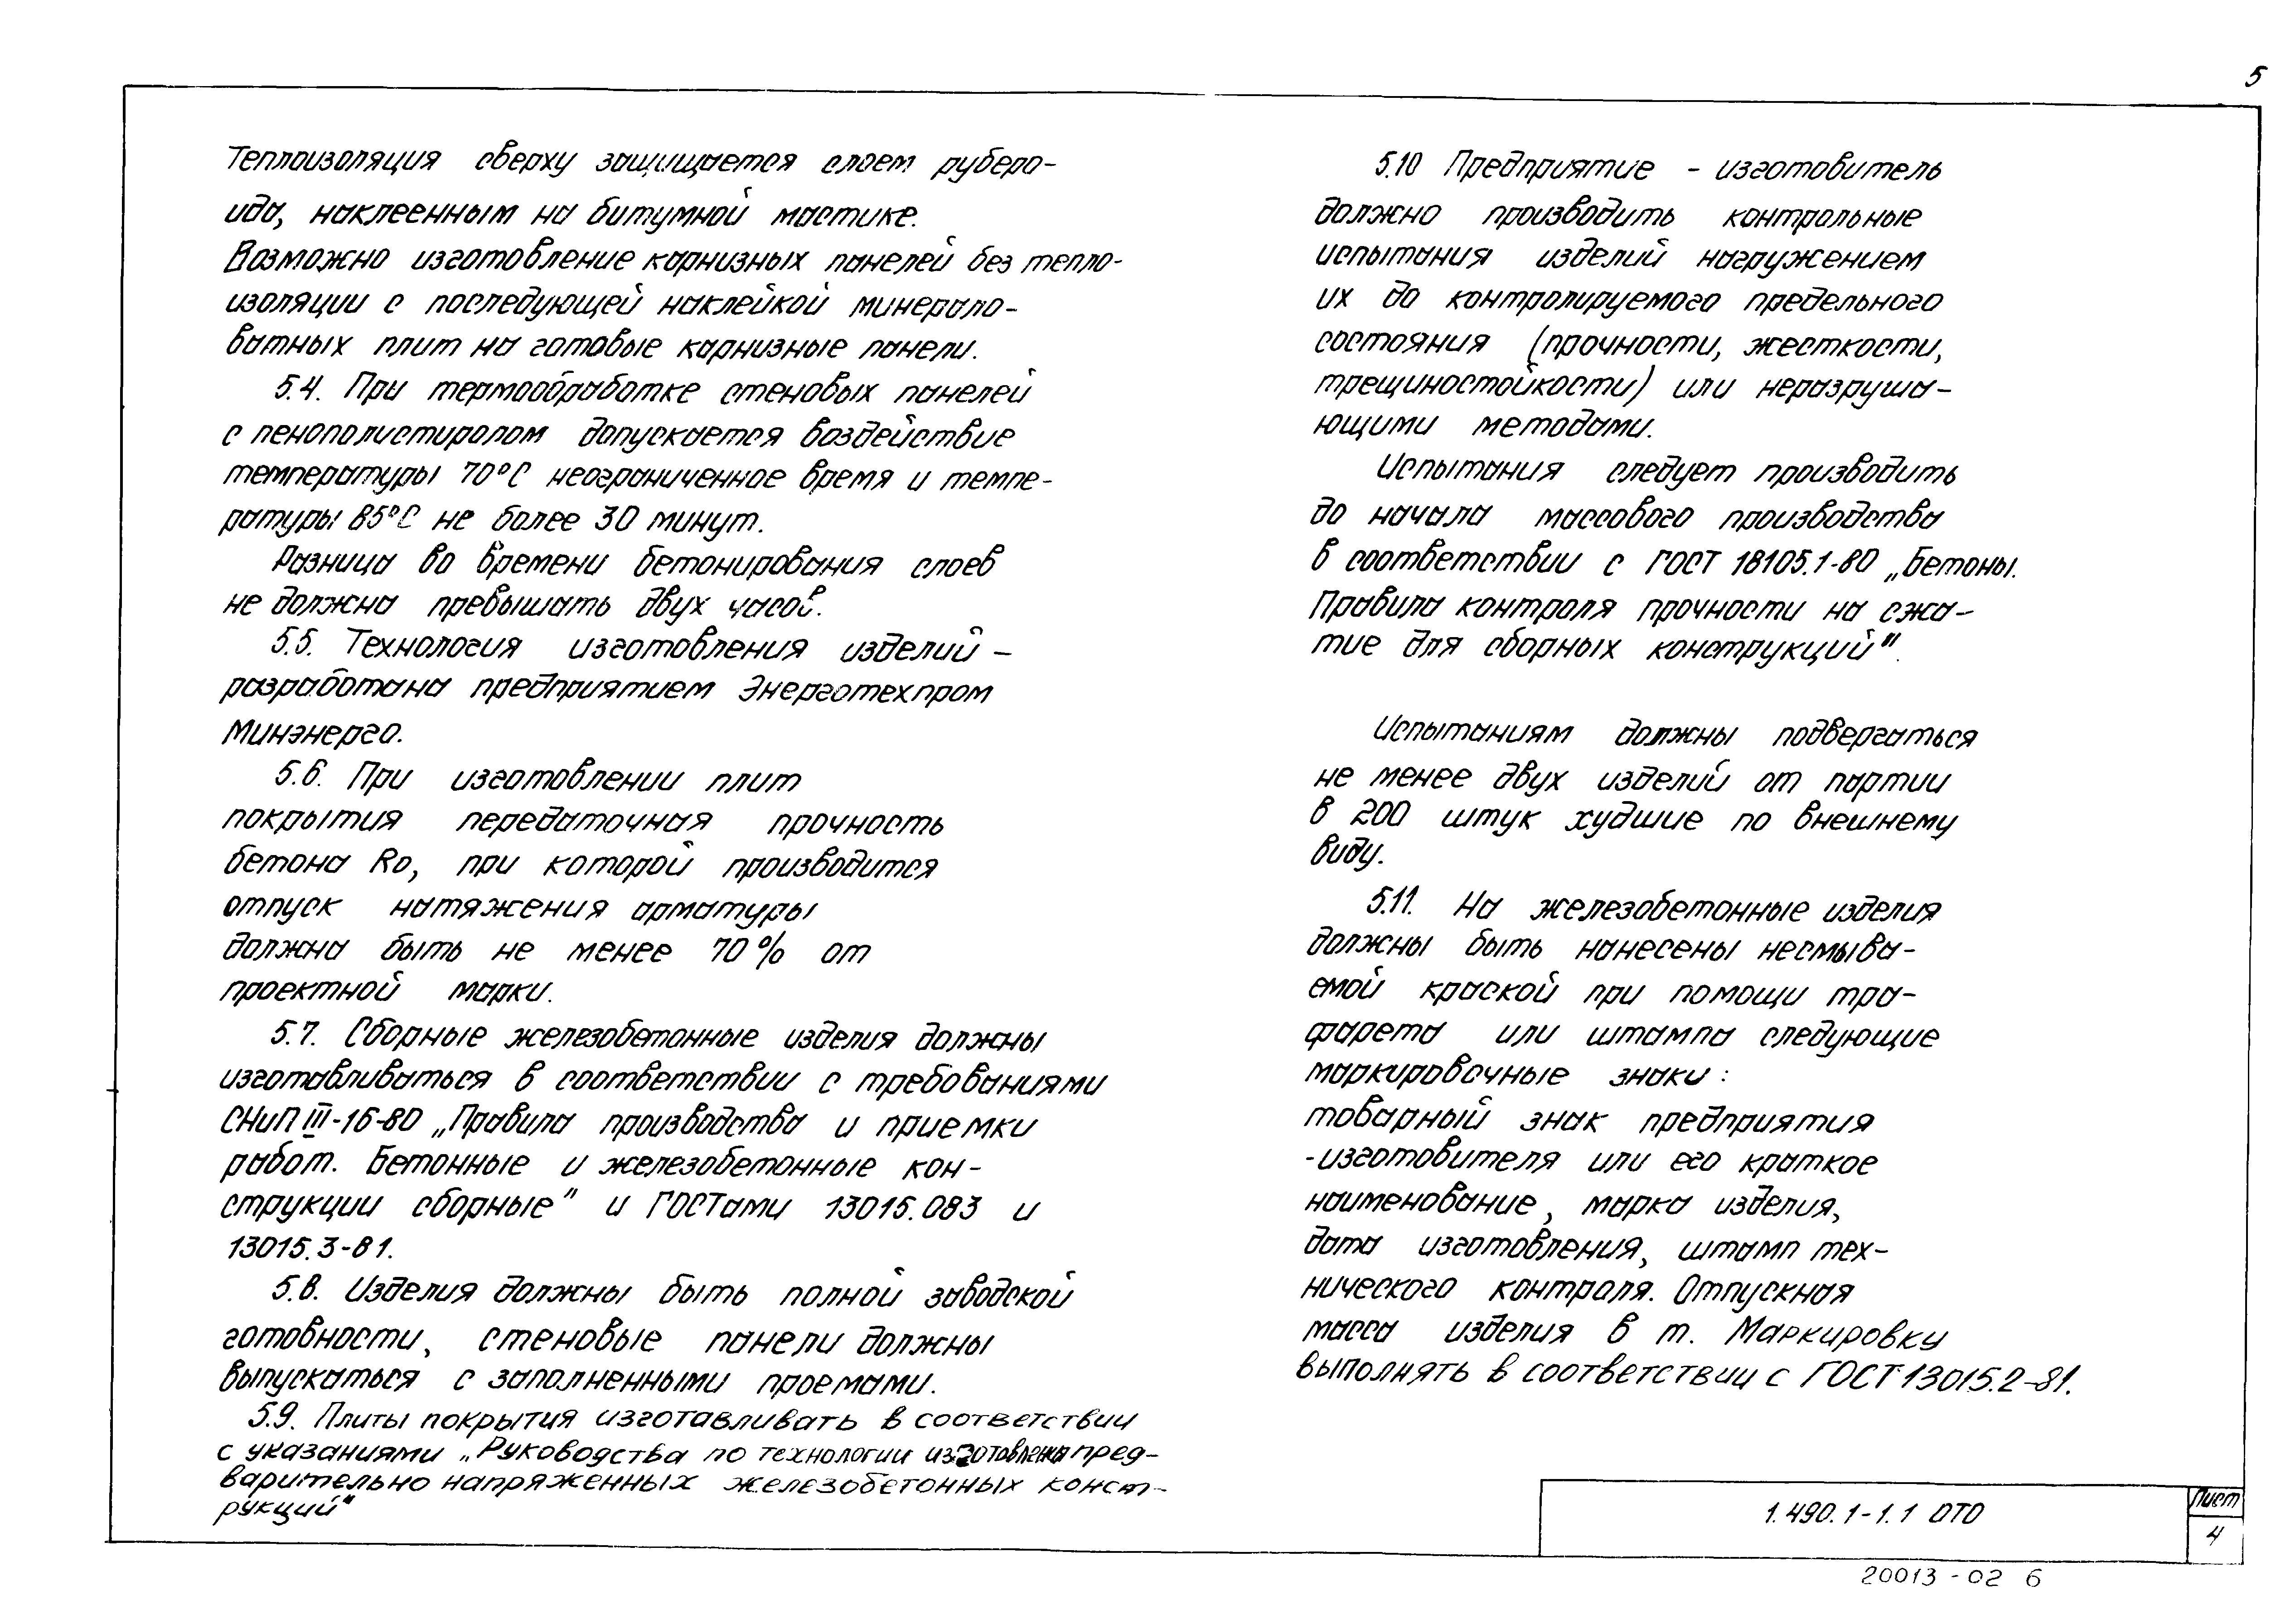 5
Теплоизоляция сверху защищается слоем руберо-
ида, наклеенным на битумной мастике.
Возможно изготовление карнизных панелей без тепло-
изоляции с последующей наклейкой минерало-
ватных плит на готовые карнизные панели.
5.4. При термообработке стеновых панелей
с пенополистиролом допускается воздействие
температуры 70°С неограниченное время и темпе-
ратуры 85°С не более 30 минут.
Разница во времени бетонирования слоев
не должна превышать двух часов.
5.5. Технология изготовления изделий -
разработана предприятием Энерготехпром
Минэнерго.
5.6. При изготовлении плит
покрытия передаточная прочность
бетона Ro, при которой производится
отпуск натяжения арматуры
должна быть не менее 70% от
проектной марки.
5.7. Сборные железобетонные изделия должны
изготавливаться в соответствии с требованиями
СНиП III-16-80 „Правила производства и приемки
работ. Бетонные и железобетонные кон-
струкции сборные" и ГОСТами 13015.083 и
13015.3-81.
5.8. Изделия должны быть полной заводской
готовности, стеновые панели должны
выпускаться с заполненными проемами.
5.9. Плиты покрытия изготавливать в соответствии
с указаниями „Руководства по технологии изготовления пред-
варительно напряженных железобетонных конст-
рукций"
5.10 Предприятие - изготовитель
должно производить контрольные
испытания изделий нагружением
их до контролируемого предельного
состояния (прочности, жесткости,
трещиностойкости) или неразруша-
ющими методами.
Испытания следует производить
до начала массового производства
в соответствии с ГОСТ 18105.1-80 „Бетоны.
Правила контроля прочности на сжа-
тие для сборных конструкций".
Испытаниям должны подвергаться
не менее двух изделий от партии
в 200 штук худшие по внешнему
виду.
5.11. На железобетонные изделия
должны быть нанесены несмыва-
емой краской при помощи тра-
фарета или штампа следующие
маркировочные знаки:
товарный знак предприятия
-изготовителя или его краткое
наименование, марка изделия,
дата изготовления, штамп тех-
нического контроля. Отпускная
масса изделия в т. Маркировку
выполнять в соответствии с ГОСТ 13015.2-81.
1.490.1-1.1 ОТО
Лист
4
20013-02 6